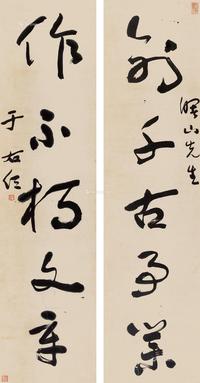 千古事業
山先生
作不朽文章
于右任